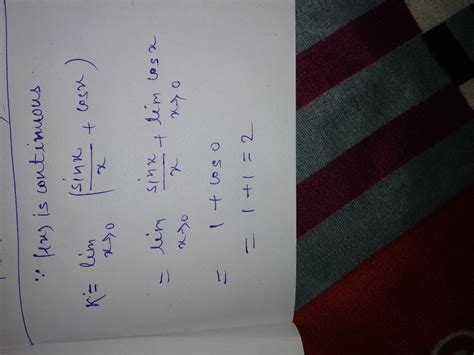 ∵ f(x) is continuous
K = lim x→0 (sinx/x + cosx)
= lim x→0 sinx/x + lim x→0 cosx
= 1 + cos0
= 1+1=2